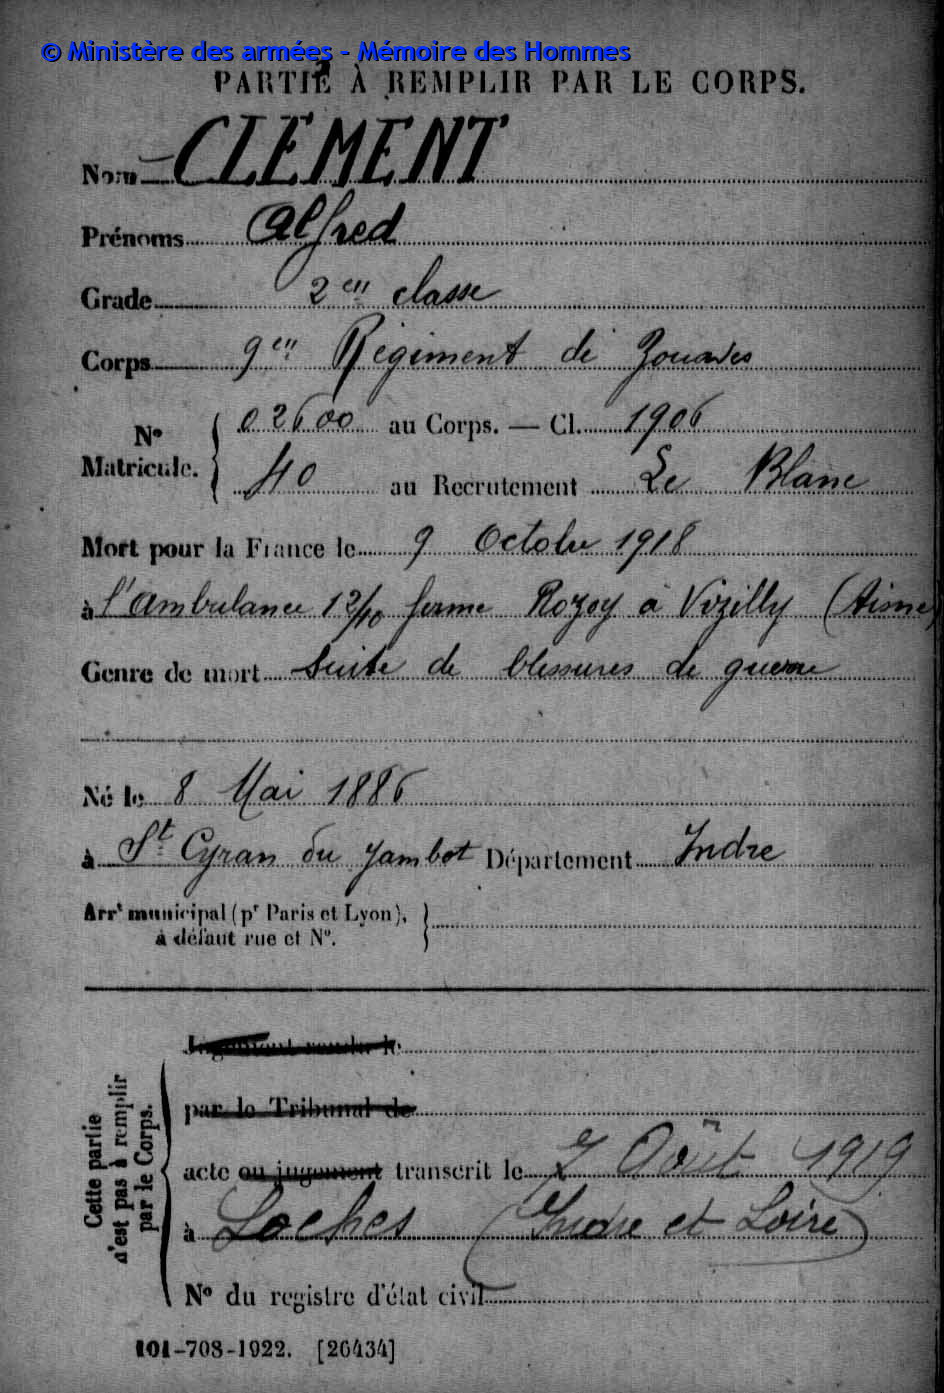 © Ministère des armées - Mémoire des Hommes
PARTIE À REMPLIR PAR LE CORPS.
Nom CLEMENT
Prénoms Alfred
Grade 2em classe
Corps 9em Régiment de Zouaves
N° Matricule. { 02600 au Corps. — Cl. 1906
40 au Recrutement Le Blanc
Mort pour la France le 9 Octobre 1918
à l'ambulance 12/10 ferme Rozoy à Vizilly (Aisne)
Genre de mort Suite de blessures de guerre
Né le 8 Mai 1886
à St Cyran du Jambot Département Indre
Arrt municipal (pr Paris et Lyon),
à défaut rue et N°.
Cette partie
d'est pas à remplir
par le Corps.
Jugement rendu le
par le Tribunal de
acte ou jugement transcrit le 7 Août 1919
à Loches (Indre et Loire)
N° du registre d'état civil
101-708-1922. [26434]